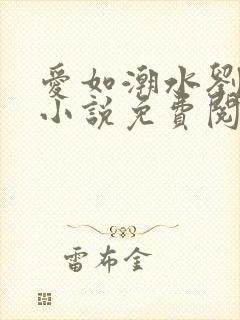 愛如潮水劉
小說免費閱
雷布金